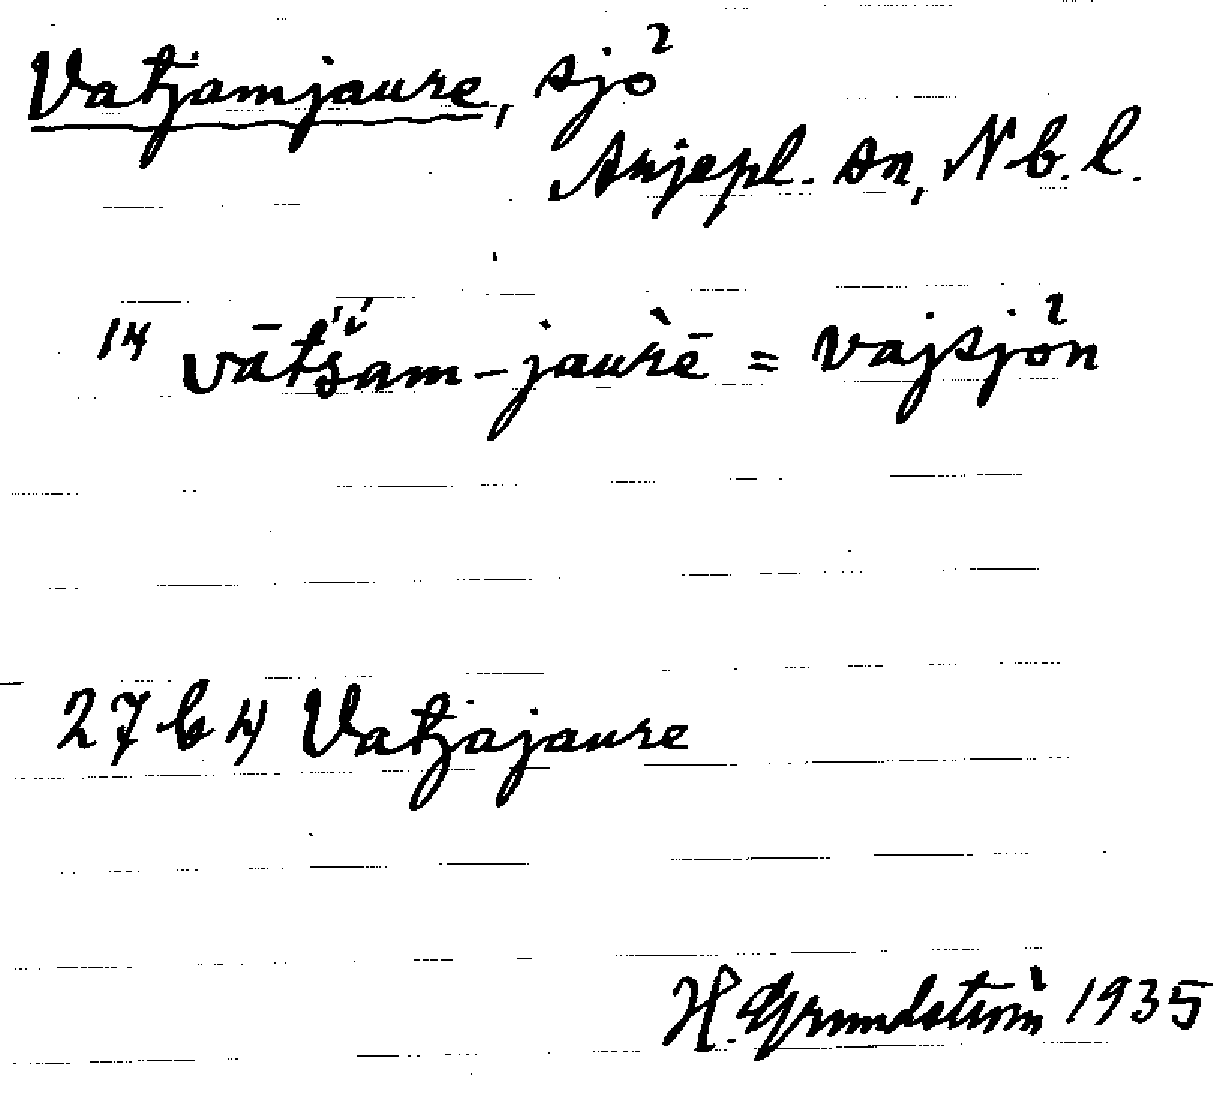 Vatjamjaure, sjö
Arjepl. sn, Nb. l.
14 vātsam-jaurē = vajsjön
27 b 4 Vatjajaure
H. Grundström 1935